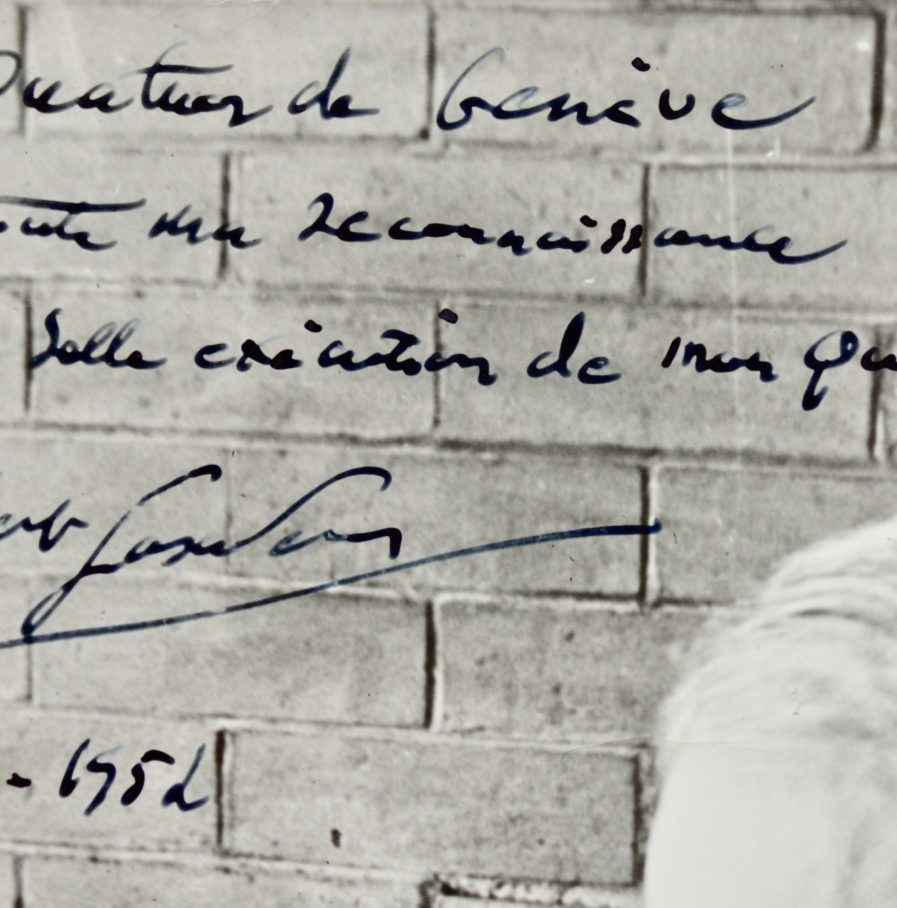 Quatuor de Genève
toute ma reconnaissance
belle exécution de mon Qu
- 1952